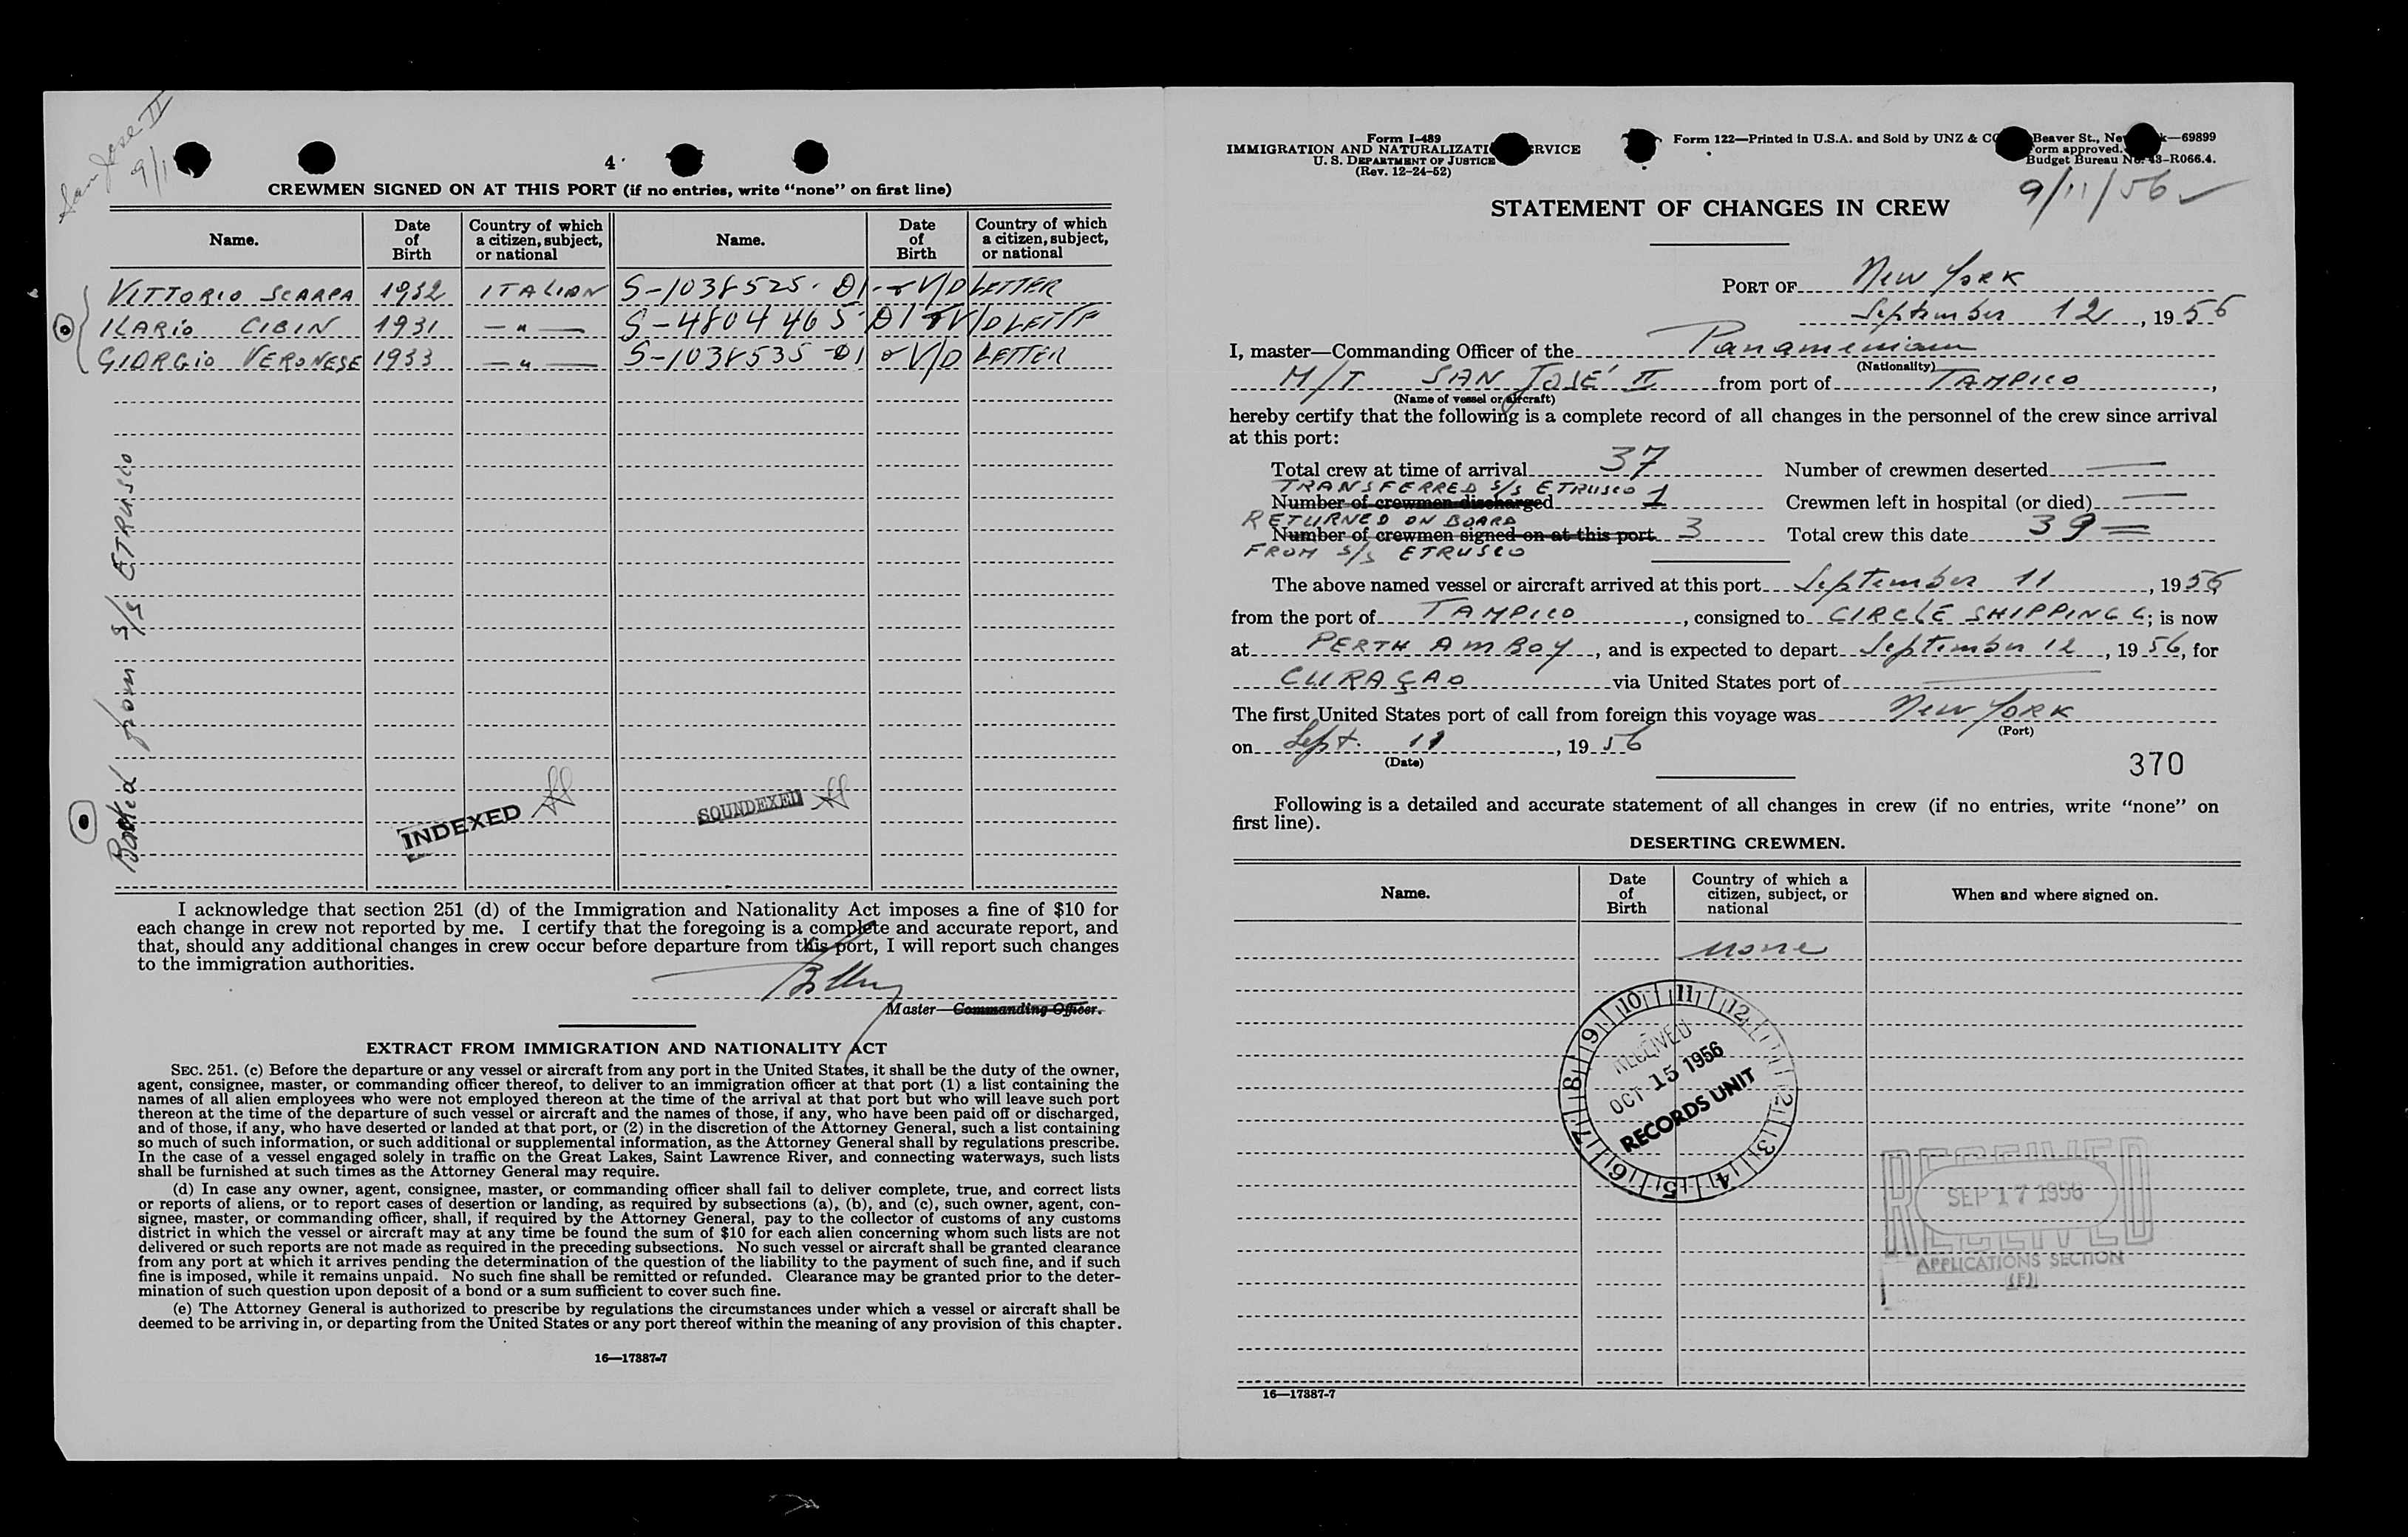 San Jose II
9/1
4
CREWMEN SIGNED ON AT THIS PORT (if no entries, write "none" on first line)
Name. Date of Birth Country of which a citizen, subject, or national Name. Date of Birth Country of which a citizen, subject, or national
VITTORIO SCARPA 1932 ITALIAN S-1038525- D1 - V/D LETTER
ILARIO CIBIN 1931 — " — S-4804465 D1 V/D LETTE
GIORGIO VERONESE 1933 — " — S-1038535 D1 V/D LETTER
Backed from S/S ETRUSCO
INDEXED
SOUNDEXED
I acknowledge that section 251 (d) of the Immigration and Nationality Act imposes a fine of $10 for
each change in crew not reported by me. I certify that the foregoing is a complete and accurate report, and
that, should any additional changes in crew occur before departure from this port, I will report such changes
to the immigration authorities.
Master—Commanding Officer.
EXTRACT FROM IMMIGRATION AND NATIONALITY ACT
SEC. 251. (c) Before the departure or any vessel or aircraft from any port in the United States, it shall be the duty of the owner,
agent, consignee, master, or commanding officer thereof, to deliver to an immigration officer at that port (1) a list containing the
names of all alien employees who were not employed thereon at the time of the arrival at that port but who will leave such port
thereon at the time of the departure of such vessel or aircraft and the names of those, if any, who have been paid off or discharged,
and of those, if any, who have deserted or landed at that port, or (2) in the discretion of the Attorney General, such a list containing
so much of such information, or such additional or supplemental information, as the Attorney General shall by regulations prescribe.
In the case of a vessel engaged solely in traffic on the Great Lakes, Saint Lawrence River, and connecting waterways, such lists
shall be furnished at such times as the Attorney General may require.
(d) In case any owner, agent, consignee, master, or commanding officer shall fail to deliver complete, true, and correct lists
or reports of aliens, or to report cases of desertion or landing, as required by subsections (a), (b), and (c), such owner, agent, con-
signee, master, or commanding officer, shall, if required by the Attorney General, pay to the collector of customs of any customs
district in which the vessel or aircraft may at any time be found the sum of $10 for each alien concerning whom such lists are not
delivered or such reports are not made as required in the preceding subsections. No such vessel or aircraft shall be granted clearance
from any port at which it arrives pending the determination of the question of the liability to the payment of such fine, and if such
fine is imposed, while it remains unpaid. No such fine shall be remitted or refunded. Clearance may be granted prior to the deter-
mination of such question upon deposit of a bond or a sum sufficient to cover such fine.
(e) The Attorney General is authorized to prescribe by regulations the circumstances under which a vessel or aircraft shall be
deemed to be arriving in, or departing from the United States or any port thereof within the meaning of any provision of this chapter.
16—17887-7
Form I-489
IMMIGRATION AND NATURALIZATI RVICE
U. S. DEPARTMENT OF JUSTICE
(Rev. 12-24-52)
Form 122—Printed in U.S.A. and Sold by UNZ & CO Beaver St., Ne k—69899
orm approved.
Budget Bureau No. 43-R066.4.
9/11/56
STATEMENT OF CHANGES IN CREW
PORT OF New York
September 12, 1956
I, master—Commanding Officer of the Panamenian
(Nationality)
M/T SAN JOSÉ II from port of TAMPICO,
(Name of vessel or aircraft)
hereby certify that the following is a complete record of all changes in the personnel of the crew since arrival
at this port:
Total crew at time of arrival 37 Number of crewmen deserted —
TRANSFERRED S/S ETRUSCO 1
Number of crewmen discharged Crewmen left in hospital (or died) —
RETURNED ON BOARD
Number of crewmen signed on at this port 3 Total crew this date 39 =
FROM S/S ETRUSCO
The above named vessel or aircraft arrived at this port September 11, 1956
from the port of TAMPICO, consigned to CIRCLE SHIPPING C; is now
at PERTH AMBOY, and is expected to depart September 12, 1956, for
CURAÇAO via United States port of —
The first United States port of call from foreign this voyage was New York
(Port)
on Sept. 11, 1956
(Date)
370
Following is a detailed and accurate statement of all changes in crew (if no entries, write "none" on
first line).
DESERTING CREWMEN.
Name. Date of Birth Country of which a citizen, subject, or national When and where signed on.
none
10 11 12 1 2 3 4 5 6 7 8 9
RECEIVED
OCT 15 1956
RECORDS UNIT
RECEIVED
SEP 17 1956
APPLICATIONS SECTION
(F)
16—17887-7